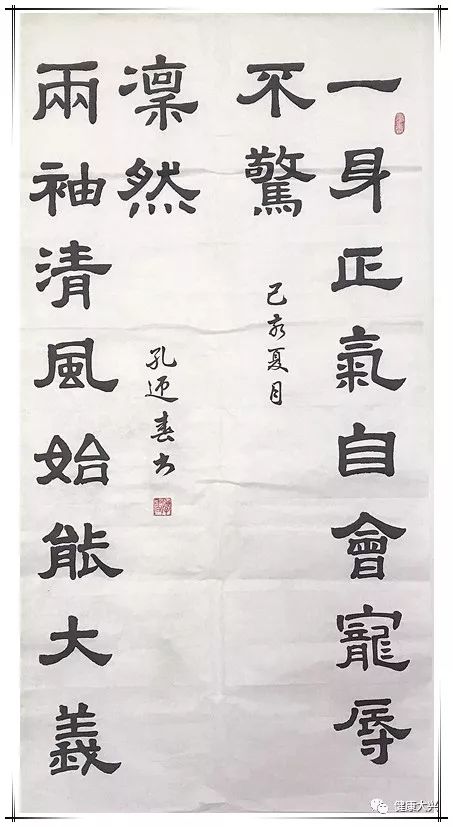 一身正氣自會寵辱
不驚
己亥夏月
兩袖清風始能大義
凛然
孔迎春书
健康大兴